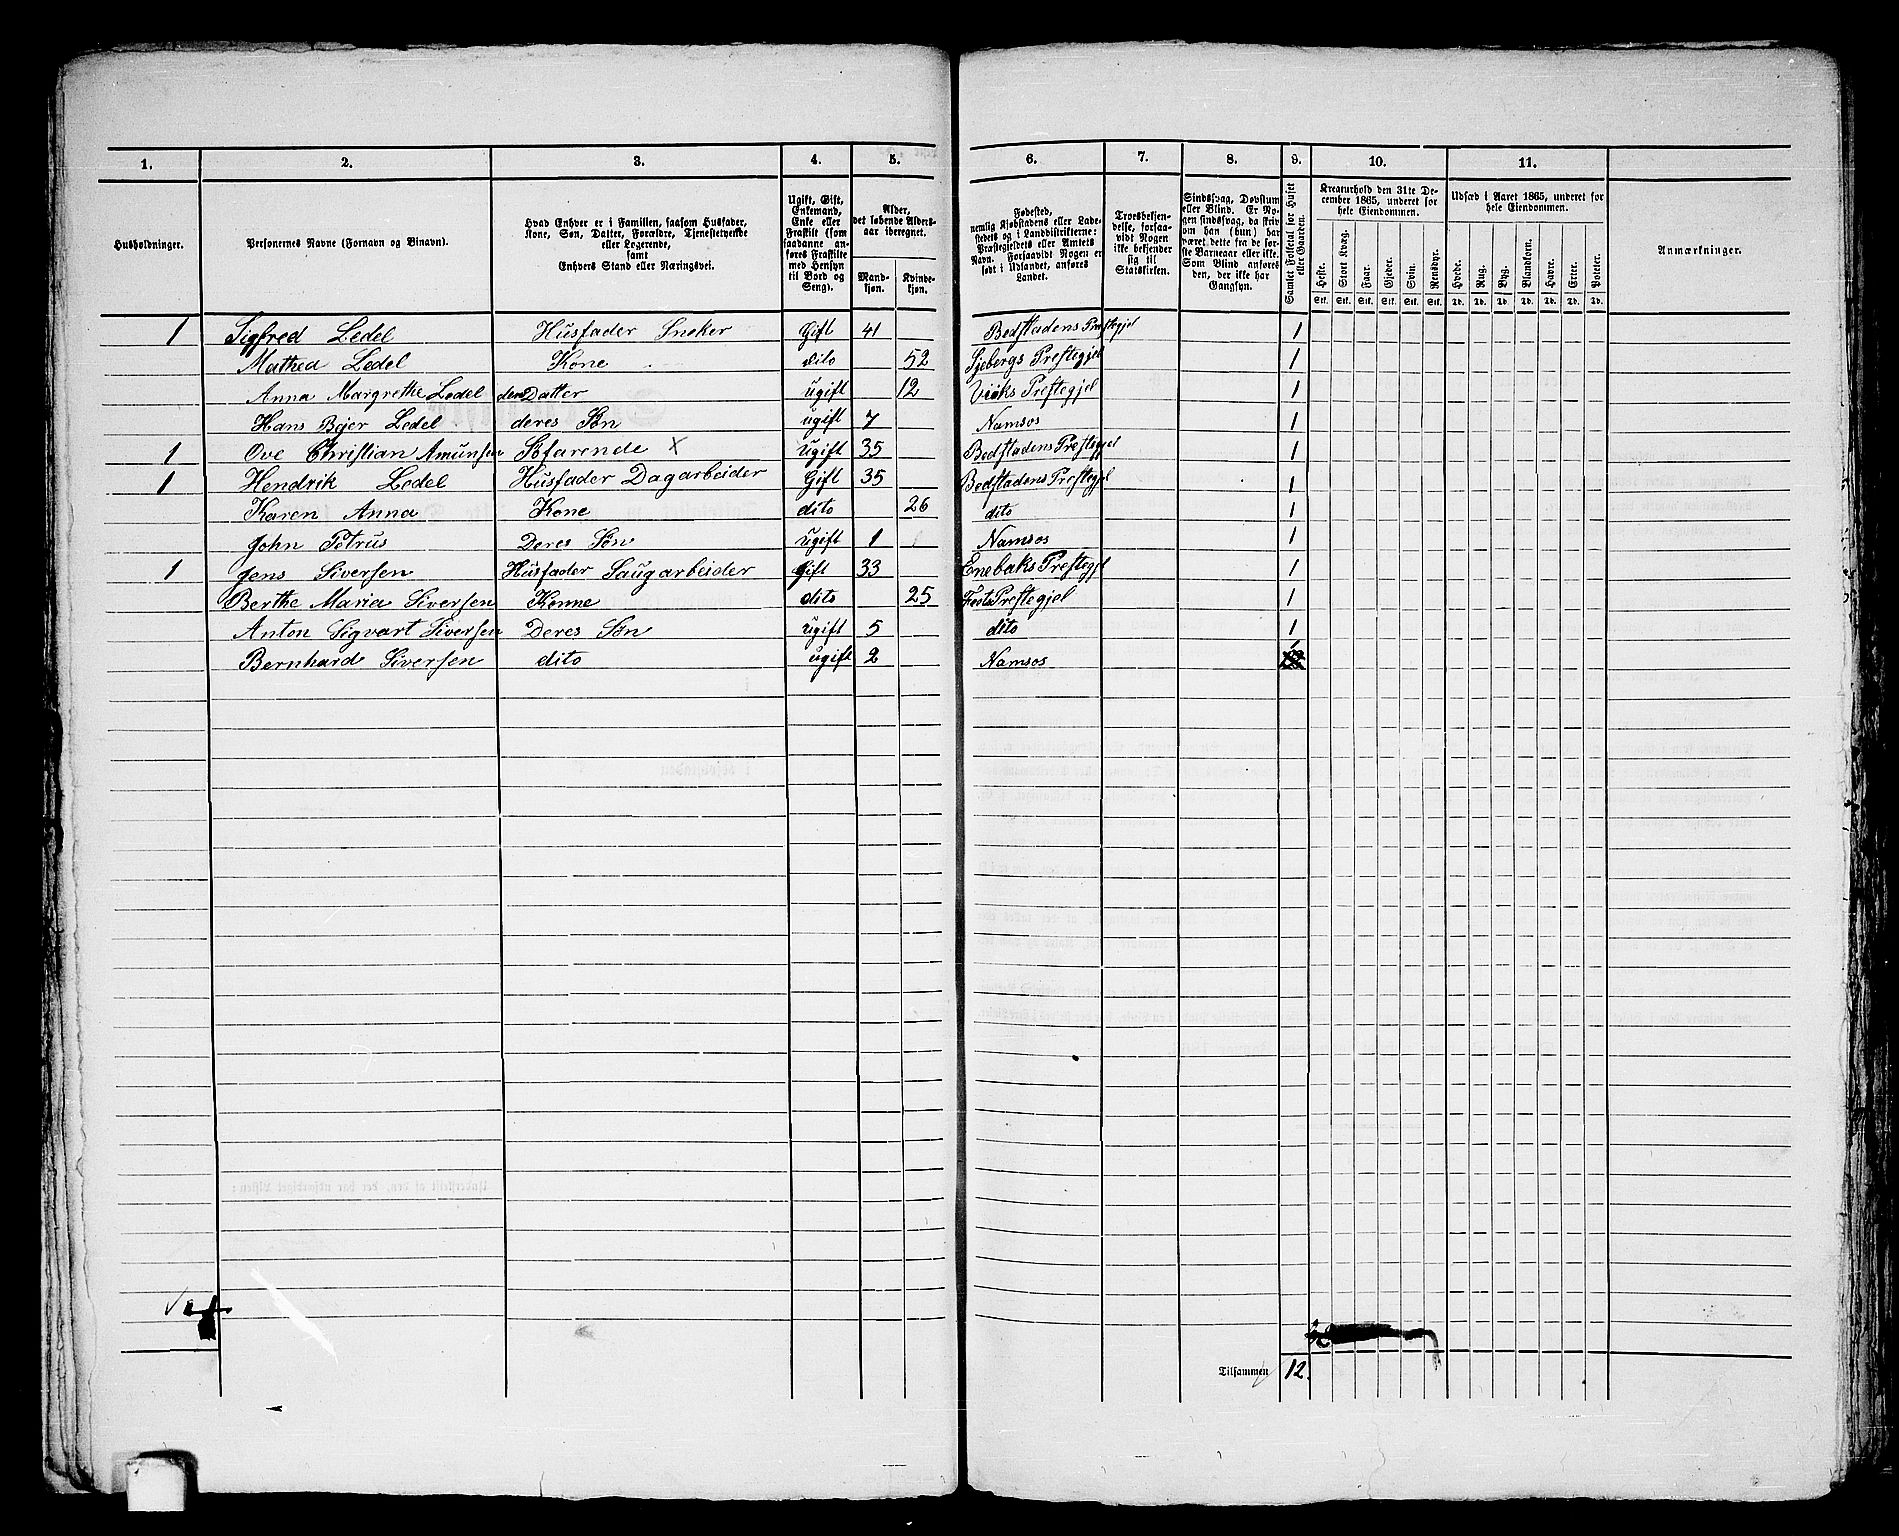 1. 2. 3. 4. 5. 6. 7. 8. 9. 10. 11.
Husholdninger.
Personernes Navne (Fornavn og Binavn).
Hvad Enhver er i Familien, saasom Husfader,
Kone, Søn, Datter, Forældre, Tjenestetyende
eller Logerende,
samt
Enhvers Stand eller Næringsvei.
Ugift, Gift,
Enkemand,
Enke eller
Fraskilt (som
saadanne an-
føres Fraskilte
med Hensyn
til Bord og
Seng).
Alder,
det løbende Alders-
aar iberegnet.
Mand-
kjøn.
Kvinde-
kjøn.
Fødested,
nemlig Kjøbstadens eller Lade-
stedets og i Landdistrikterne:
Præstegjeldets eller Amtets
Navn. Forsaavidt Nogen er
født i Udlandet, anføres
Landet.
Troesbekjen-
delse, forsaa-
vidt Nogen
ikke bekjender
sig til
Statskirken.
Sindssvag, Døvstum
eller Blind. Er No-
gen sindssvag, da skriv
om han (hun) har
været dette fra de før-
ste Barneaar eller ikke.
Som Blind anføres
den, der ikke har
Gangsyn.
Samlet Folketal for Huset
eller Gaarden.
Kreaturhold den 31te De-
cember 1865, underet for
hele Eiendommen.
Heste. Stort Kvæg. Faar. Gjeder. Svin. Rensdyr.
Stk. Stk. Stk. Stk. Stk. Stk.
Udsæd i Aaret 1865, underet for
hele Eiendommen.
Hvede. Rug. Byg. Blandkorn. Havre. Erter. Poteter.
Td. Td. Td. Td. Td. Td. Td.
Anmærkninger.
1 Sigfred Ledel Husfader Sneker Gift 41 Bedstadens Prestegjel 1
Mathea Ledel Kone dito 52 Sjebergs Prestegjel 1
Anna Margrethe Ledel Datter ugift 12 Viiks Prestegjel 1
Hans Bejer Ledel deres Søn ugift 7 Namsos 1
1 Ove Christian Amunsen Søfarende X ugift 35 Bedstadens Prestegjel 1
1 Hendrik Ledel Husfader Dagarbeider Gift 35 Bedstadens Prestegjel 1
Karen Anna Kone dito 26 dito 1
John Petrus Deres Søn ugift 1 Namsos 1
1 Jens Siversen Husfader Saugarbeider Gift 33 Enebaks Prestegjel 1
Berthe Maria Siversen Konne dito 25 Feets Prestegjel 1
Anton Sigvart Siversen Deres Søn ugift 5 dito 1
Bernhard Siversen dito ugift 2 Namsos 1
Tilsammen 12.